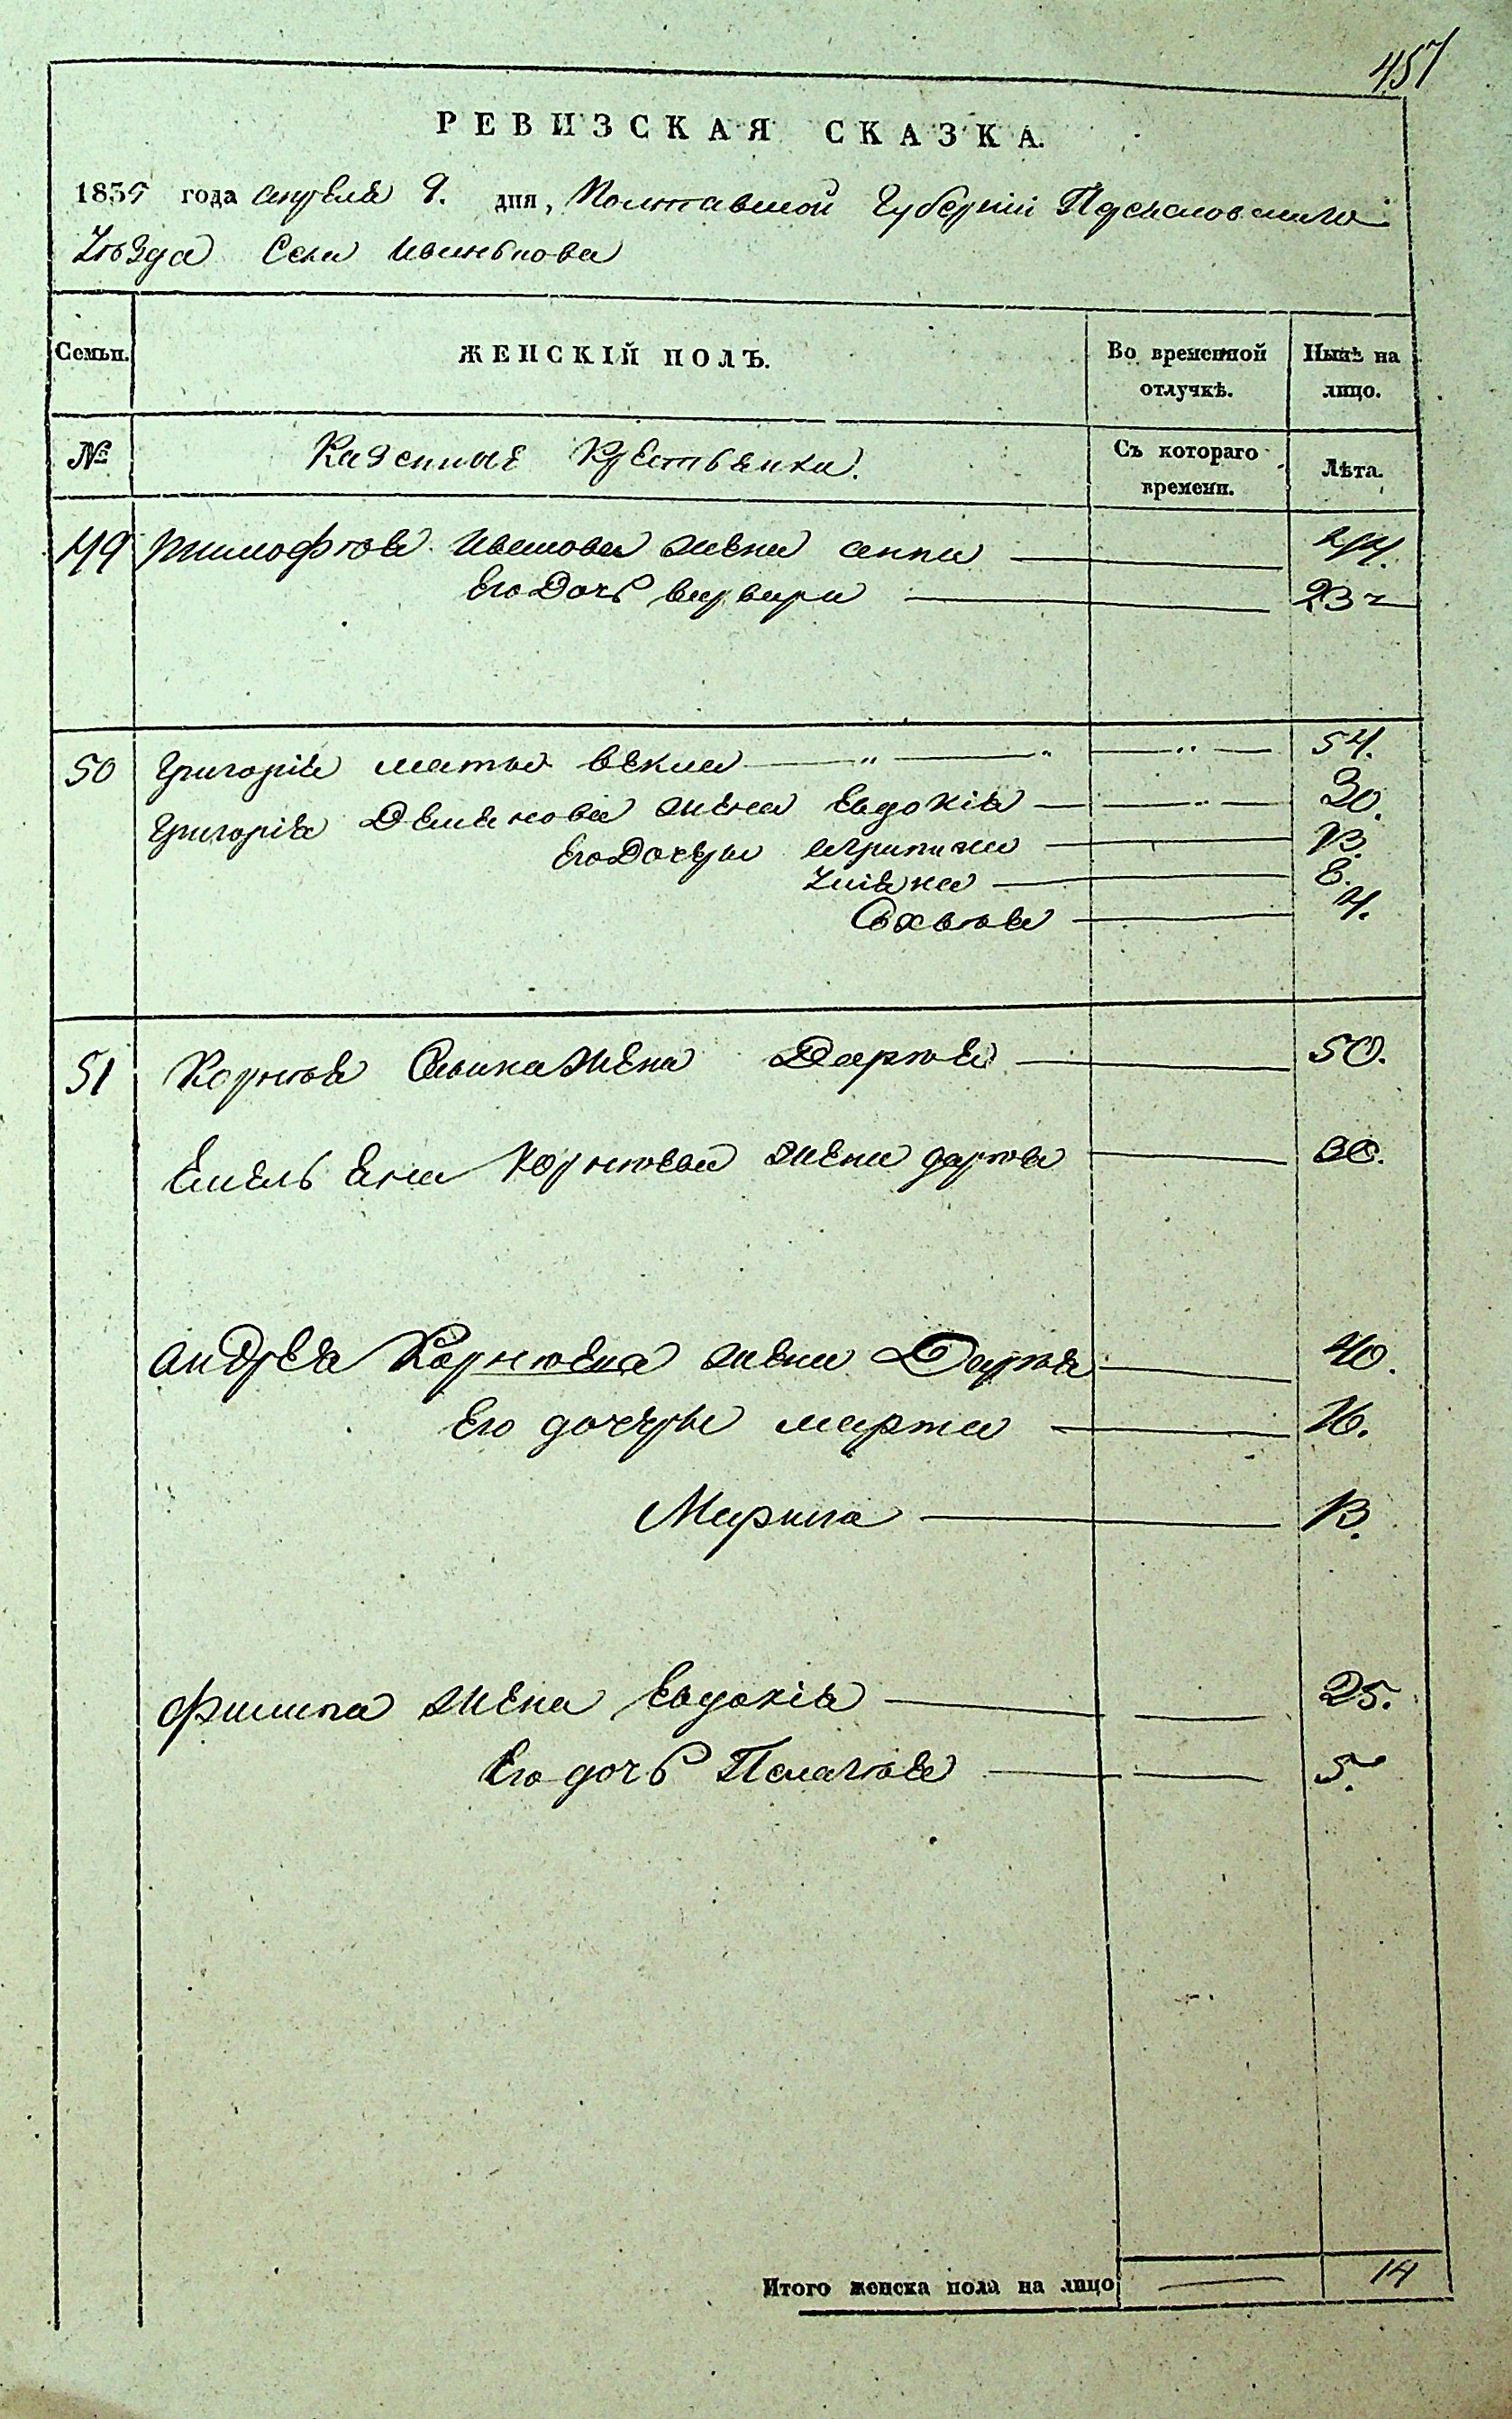 457
РЕВИЗСКАЯ СКАЗКА.
1835 года апреля 9. дня, Полтавской Губернии Переяславского
Уезда Села
Семьи. ЖЕНСКІЙ ПОЛЪ. Во временной отлучкѣ. Нынѣ на лицо.
№ Казенные Крестьянки. Съ котораго времени. Лѣта.
49 Тимофѣя Иванова жена анна 44.
Его Дочь варвара 23
50 Григорія мать векла 54.
Григорія Демянова жена Евдокія 30.
Его Дочеры агрипина 13.
Улияна 8.
4.
51 Корнѣя жена Дарія 50.
Емельяна Корнѣева жена дарія 30.
андрея Корнѣева жена Дарія 40.
Его дочеры марта 16.
Марина 13.
филипа жена Евдокія 25.
Его дочь Пелагѣя 5.
Итого женска пола на лицо 14